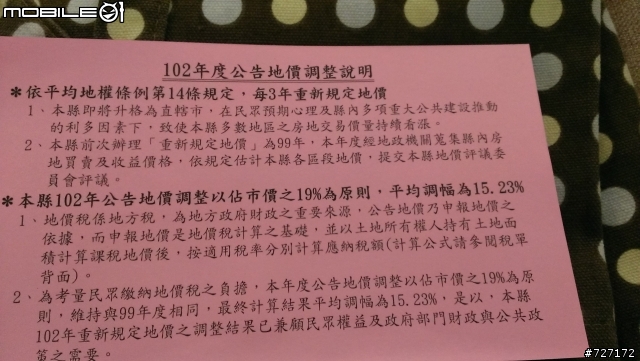 MOBILE01
102年度公告地價調整說明
＊依平均地權條例第14條規定，每3年重新規定地價
1、本縣即將升格為直轄市，在民眾預期心理及縣內多項重大公共建設推動
的利多因素下，致使本縣多數地區之房地交易價量持續看漲。
2、本縣前次辦理「重新規定地價」為99年，本年度經地政機關蒐集縣內房
地買賣及收益價格，依規定估計本縣各區段地價，提交本縣地價評議委
員會評議。
＊本縣102年公告地價調整以佔市價之19%為原則，平均調幅為15.23%
1、地價稅係地方稅，為地方政府財政之重要來源，公告地價乃申報地價之
依據，而申報地價是地價稅計算之基礎，並以土地所有權人持有土地面
積計算課稅地價後，按適用稅率分別計算應納稅額(計算公式請參閱稅單
背面)。
2、為考量民眾繳納地價稅之負擔，本年度公告地價調整以佔市價之19%為原
則，維持與99年度相同，最終計算結果平均調幅為15.23%，是以，本縣
102年重新規定地價之調整結果已兼顧民眾權益及政府部門財政與公共政
策之需要。
#727172